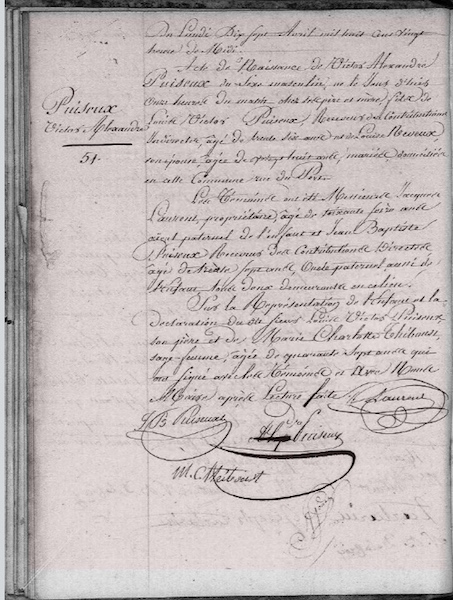 Du Lundi Dix sept Avril mil huit cent vingt
heure de Midi.
Acte de Naissance de Victor Alexandre
Puiseux du sexe masculin, né le Jour d'hier
Onze heures du matin chez ses père et mère, fils de
Louis Victor Puiseux, Receveur des Contributions
Indirectes, âgé de trente six ans et de Louise Neveux
son épouse, âgée de vingt huit ans, mariés domiciliés
en cette Commune rue du Port.
Puiseux
Victor Alexandre
51.
Les Témoins ont été Messieurs Jacques
Laurent, propriétaire, âgé de soixante ans
ayeul paternel de l'enfant et Jean Baptiste
Puiseux Receveur des Contributions Directes
âgé de trente sept ans, Oncle paternel aussi de
l'Enfant tous deux demeurants en ce lieu.
Sur la Représentation de l'enfant et la
déclaration du dit sieur Louis Victor Puiseux
son père et de Marie Charlotte Thiboust,
sage-femme, âgée de quarante sept ans qui
ont signé avec les Témoins et avec Nous
Maire après Lecture faite
J. Laurent
J B Puiseux
Puiseux
M. C. Thiboust